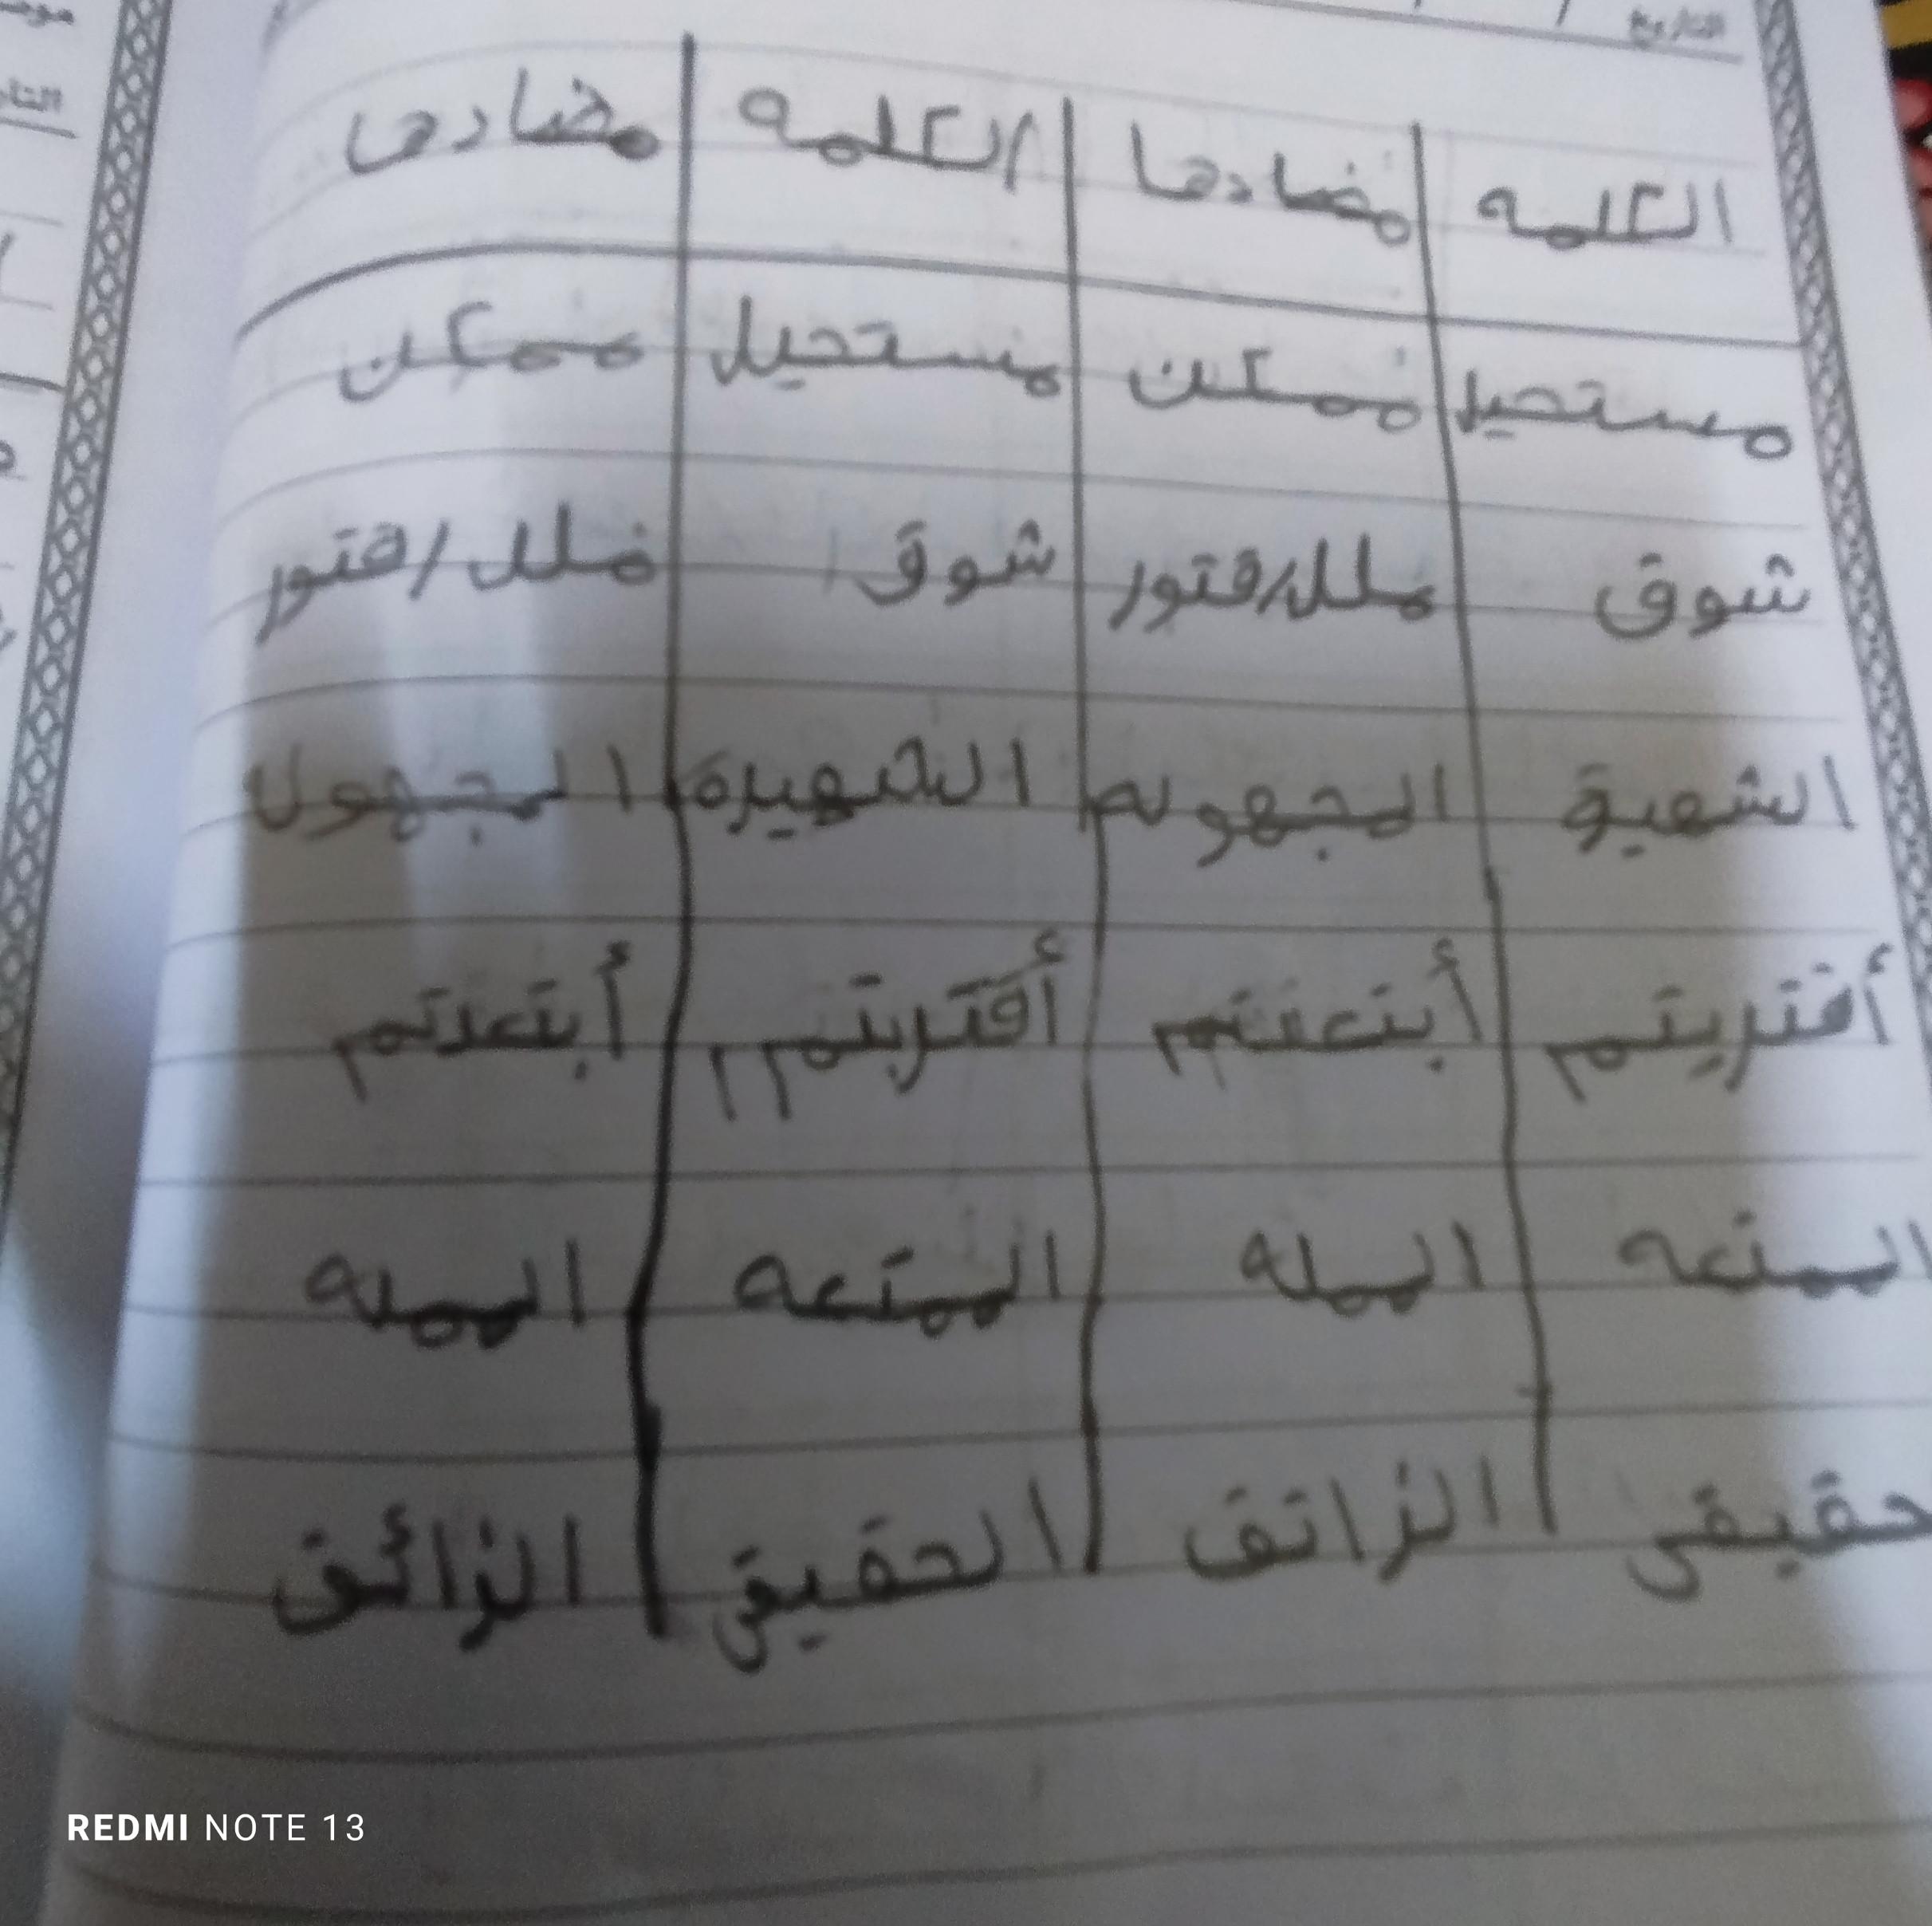 التاريخ / /
الكلمه مضادها الكلمه مضادها
مستحيل ممكن مستحيل ممكن
شوق ملل/فتور شوق ملل/فتور
الشهيرة المجهوله الشهيرة المجهول
أقتربتم أبتعدتم أقتربتم أبتعدتم
الممتعه الممله الممتعه الممله
حقيقى الزائف الحقيقى الزائف
REDMI NOTE 13